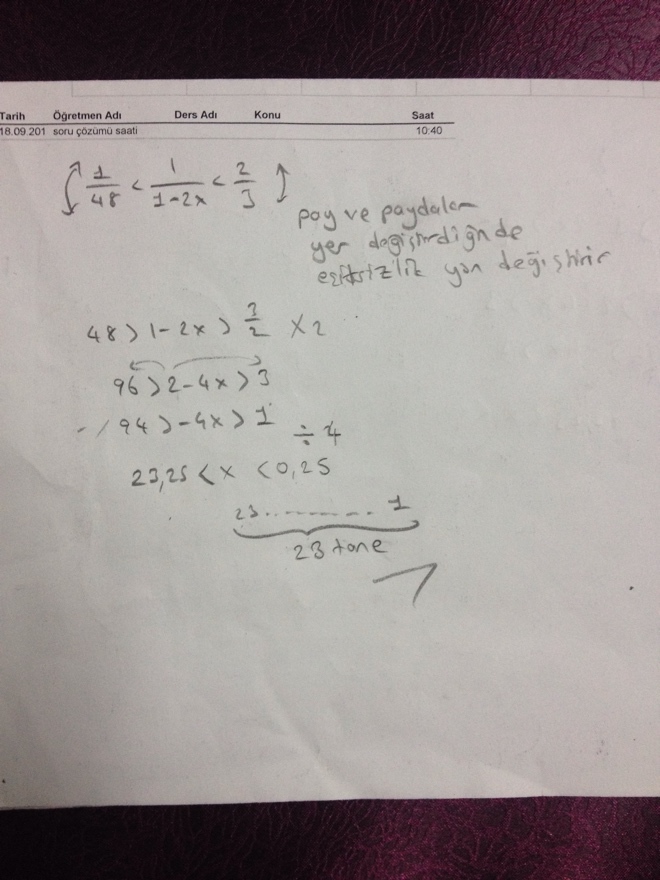 Tarih Öğretmen Adı Ders Adı Konu Saat
18.09.201 soru çözümü saati 10:40
1/48 < 1/(1-2x) < 2/3
pay ve paydalar
yer değiştirdiğinde
eşitsizlik yön değiştirir
48 > 1-2x > 3/2 x2
96 > 2-4x > 3
94 > -4x > 1 ÷ 4
23,25 < x < 0,25
23.......... 1
23 tane